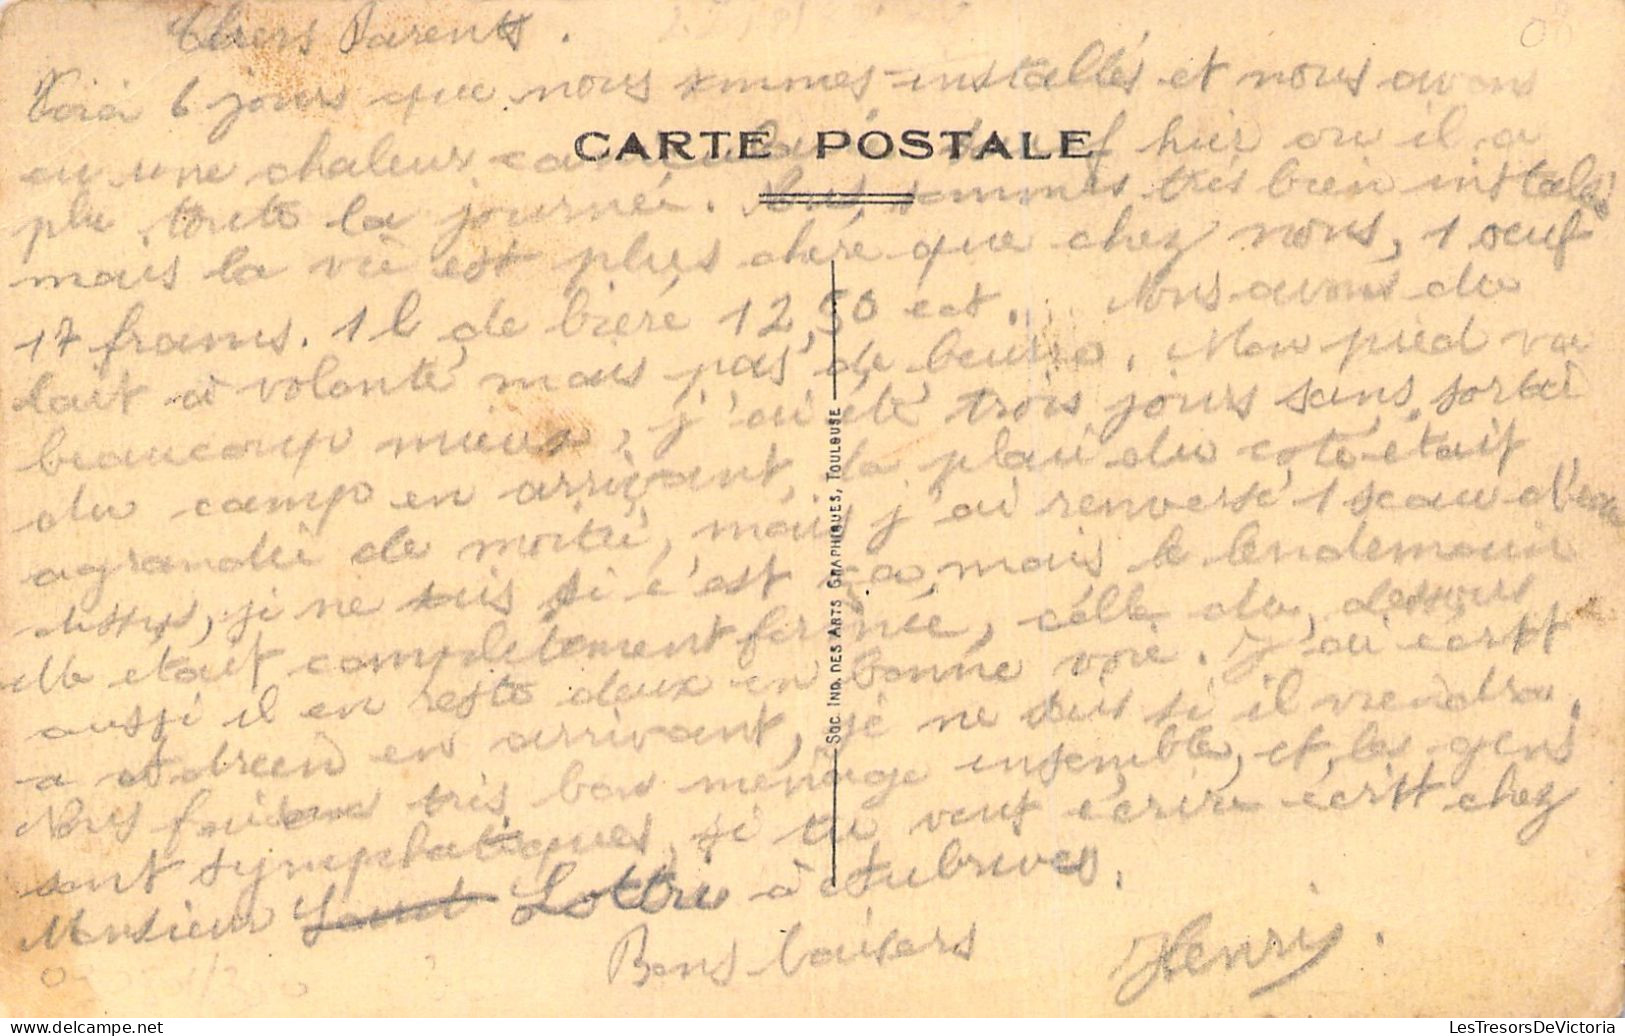 Chers Parents.
Voici 6 jours que nous sommes installés et nous avons
CARTE POSTALE
eu une chaleur sauf hier ou il a
plu toute la journée. Nous sommes très bien installés
mais la vie est plus chère que chez nous, 1 oeuf
17 francs. 1 l de bière 12,50 ect. Nous avons du
lait à volonté mais pas de beurre. Mon pied va
beaucoup mieux, j'ai été trois jours sans sortir
du camp en arrivant, la plaie du coté était
agrandie de moitié, mais j'ai renversé 1 sceau d'eau
dessus, je ne sais si c'est ça, mais le lendemain
elle était complètement fermée, celle du dessous
aussi il en reste deux en bonne voie. J'ai écrit
a en arrivant, je ne sais si il viendra.
Nous faisons très bon ménage ensemble, et les gens
sont symphatiques, si tu veux écrire écrit chez
Monsieur Lottru à Aubrives.
Bons baisers Henri.
SOC. IND. DES ARTS GRAPHIQUES, TOULOUSE
LesTresorsDeVictoria